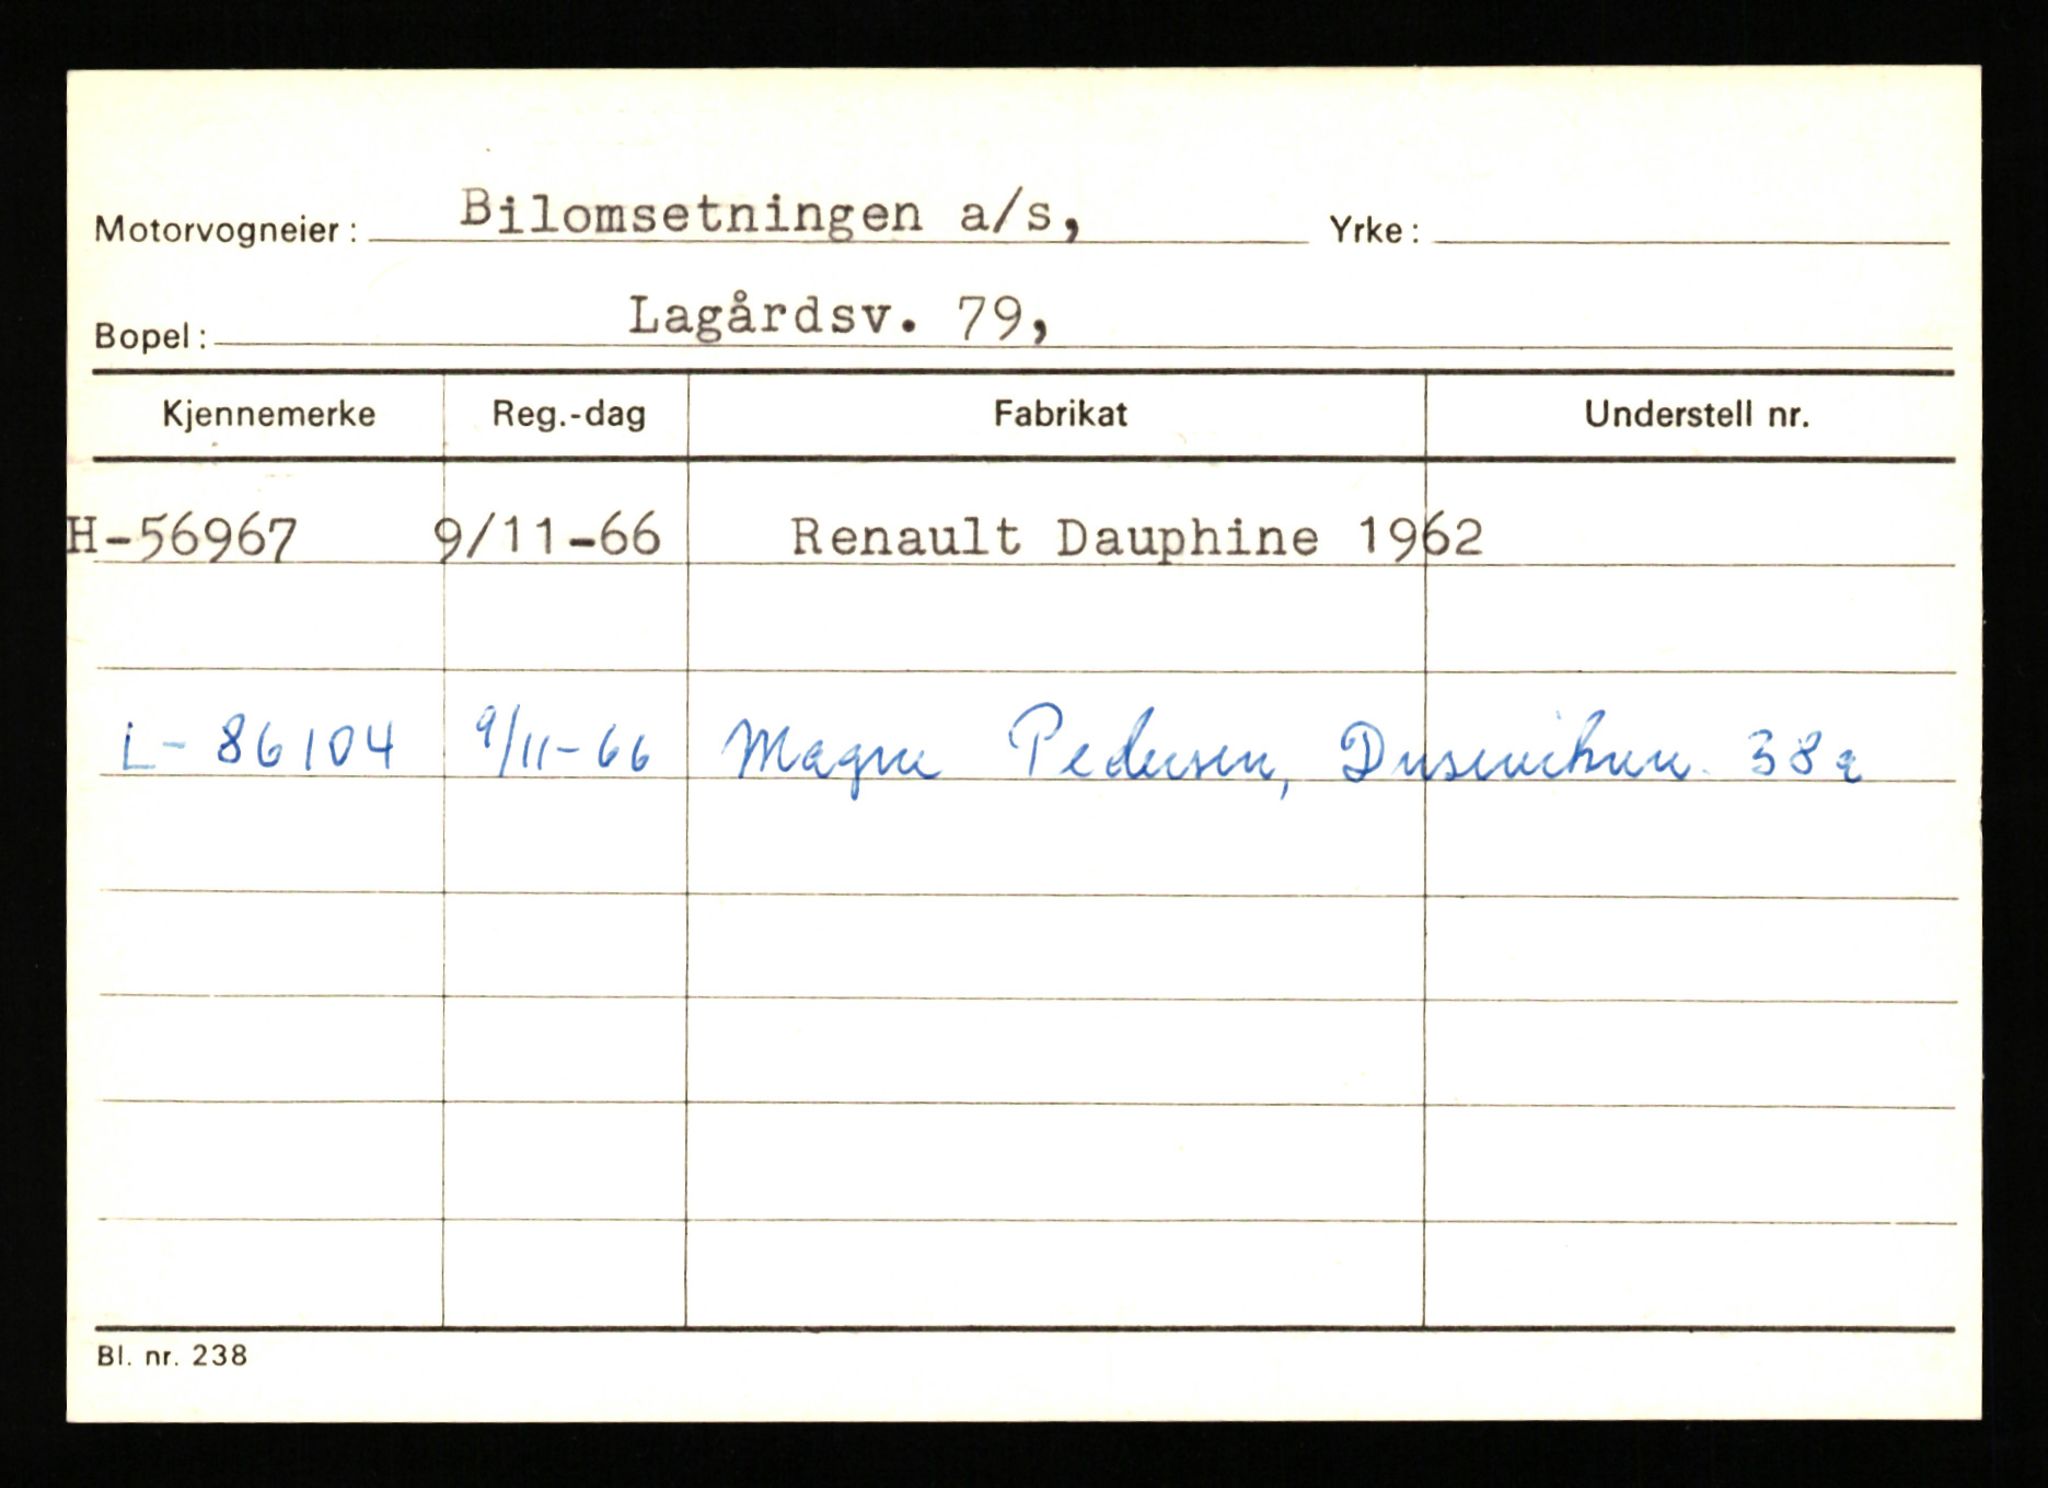 Motorvogneier: Bilomsetningen a/s, Yrke:
Bopel: Lagårdsv. 79,
Kjennemerke Reg.-dag Fabrikat Understell nr.
H-56967 9/11-66 Renault Dauphine 1962
L- 86104 9/11-66 Magne Pedersen, 38a
Bl. nr. 238